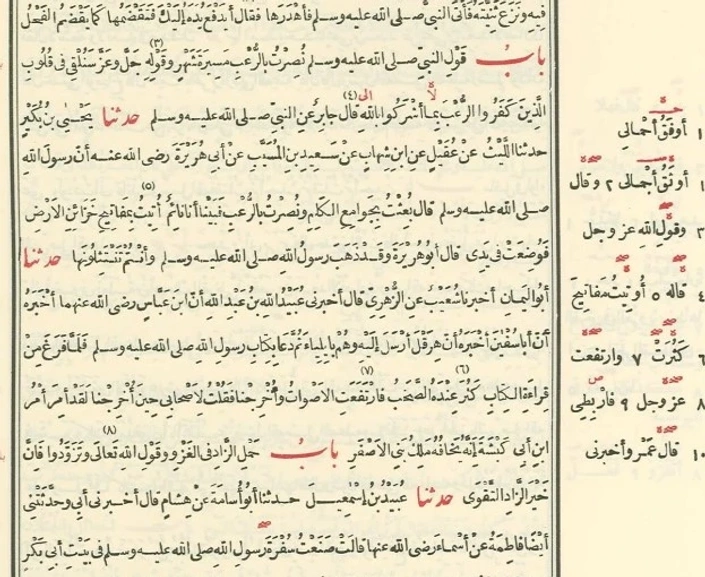 فيه ونزع ثنيته فأتى النبي صلى الله عليه وسلم فأهدرها فقال أيدفع يده إليك فتقضمها كما يقضم الفحل
باب قول النبي صلى الله عليه وسلم نصرت بالرعب مسيرة شهر وقوله جل وعز سنلقي في قلوب (٣)
الذين كفروا الرعب بما أشركوا بالله قال جابر عن النبي صلى الله عليه وسلم حدثنا يحيى بن بكير (٤)
حدثنا الليث عن عقيل عن ابن شهاب عن سعيد بن المسيب عن أبي هريرة رضي الله عنه أن رسول الله
صلى الله عليه وسلم قال بعثت بجوامع الكلم ونصرت بالرعب فبينا أنا نائم أتيت بمفاتيح خزائن الأرض (٥)
فوضعت في يدي قال أبو هريرة وقد ذهب رسول الله صلى الله عليه وسلم وأنتم تنتثلونها حدثنا
أبو اليمان أخبرنا شعيب عن الزهري قال أخبرني عبيد الله بن عبد الله أن ابن عباس رضي الله عنهما أخبره
أن أبا سفين أخبره أن هرقل أرسل إليه وهم بإيلياء ثم دعا بكتاب رسول الله صلى الله عليه وسلم فلما فرغ من
قراءة الكتاب كثر عنده الصخب فارتفعت الأصوات وأخرجنا فقلت لأصحابي حين أخرجنا لقد أمر أمر (٦) (٧)
ابن أبي كبشة إنه يخافه ملك بني الأصفر باب حمل الزاد في الغزو وقول الله تعالى وتزودوا فإن (٨)
خير الزاد التقوى حدثنا عبيد بن إسمعيل حدثنا أبو أسامة عن هشام قال أخبرني أبي وحدثتني
أيضا فاطمة عن أسماء رضي الله عنها قالت صنعت سفرة رسول الله صلى الله عليه وسلم في بيت أبي بكر
١ أوفق أجمالي
١ أوثق أجمالي ٢ وقال
٣ وقول الله عز وجل
٤ قاله ٥ أوتيت مفاتيح
٦ كثرت ٧ وارتفعت
٨ عز وجل ٩ فاربطي
١٠ قال عمرو أخبرني